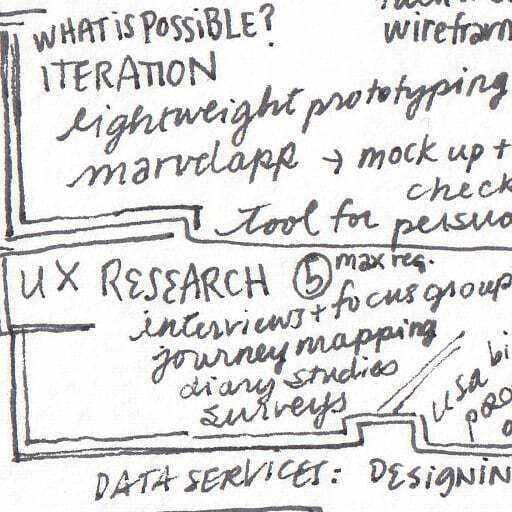 WHAT is POSSIBLE?
wirefram
ITERATION
lightweight prototyping
marvelapp → mock up +
check
tool for persua
UX RESEARCH 5 max req.
interviews + focus group
journey mapping
diary studies
surveys
usa bi
DATA SERVICES: DESIGNIN